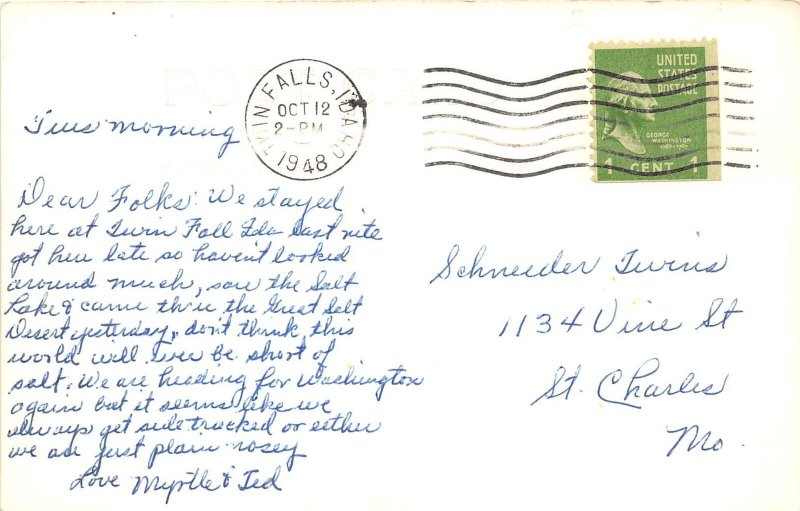 POST CARD
TWIN FALLS, IDAHO
OCT 12
2-PM
1948
UNITED
STATES
POSTAGE
GEORGE
WASHINGTON
1789-1797
1 CENT 1
Tues morning
Dear Folks: We stayed
here at Twin Fall Ida last nite
got here late so haven't looked
around much, saw the Salt
Lake & came thru the Great Salt
Desert yesterday, don't think this
world will ever be short of
salt. We are heading for Washington
again but it seems like we
always get sidetracked or either
we are just plain nosey
Love Myrtle & Ted
Schneider Twins
1134 Vine St
St. Charles
Mo.